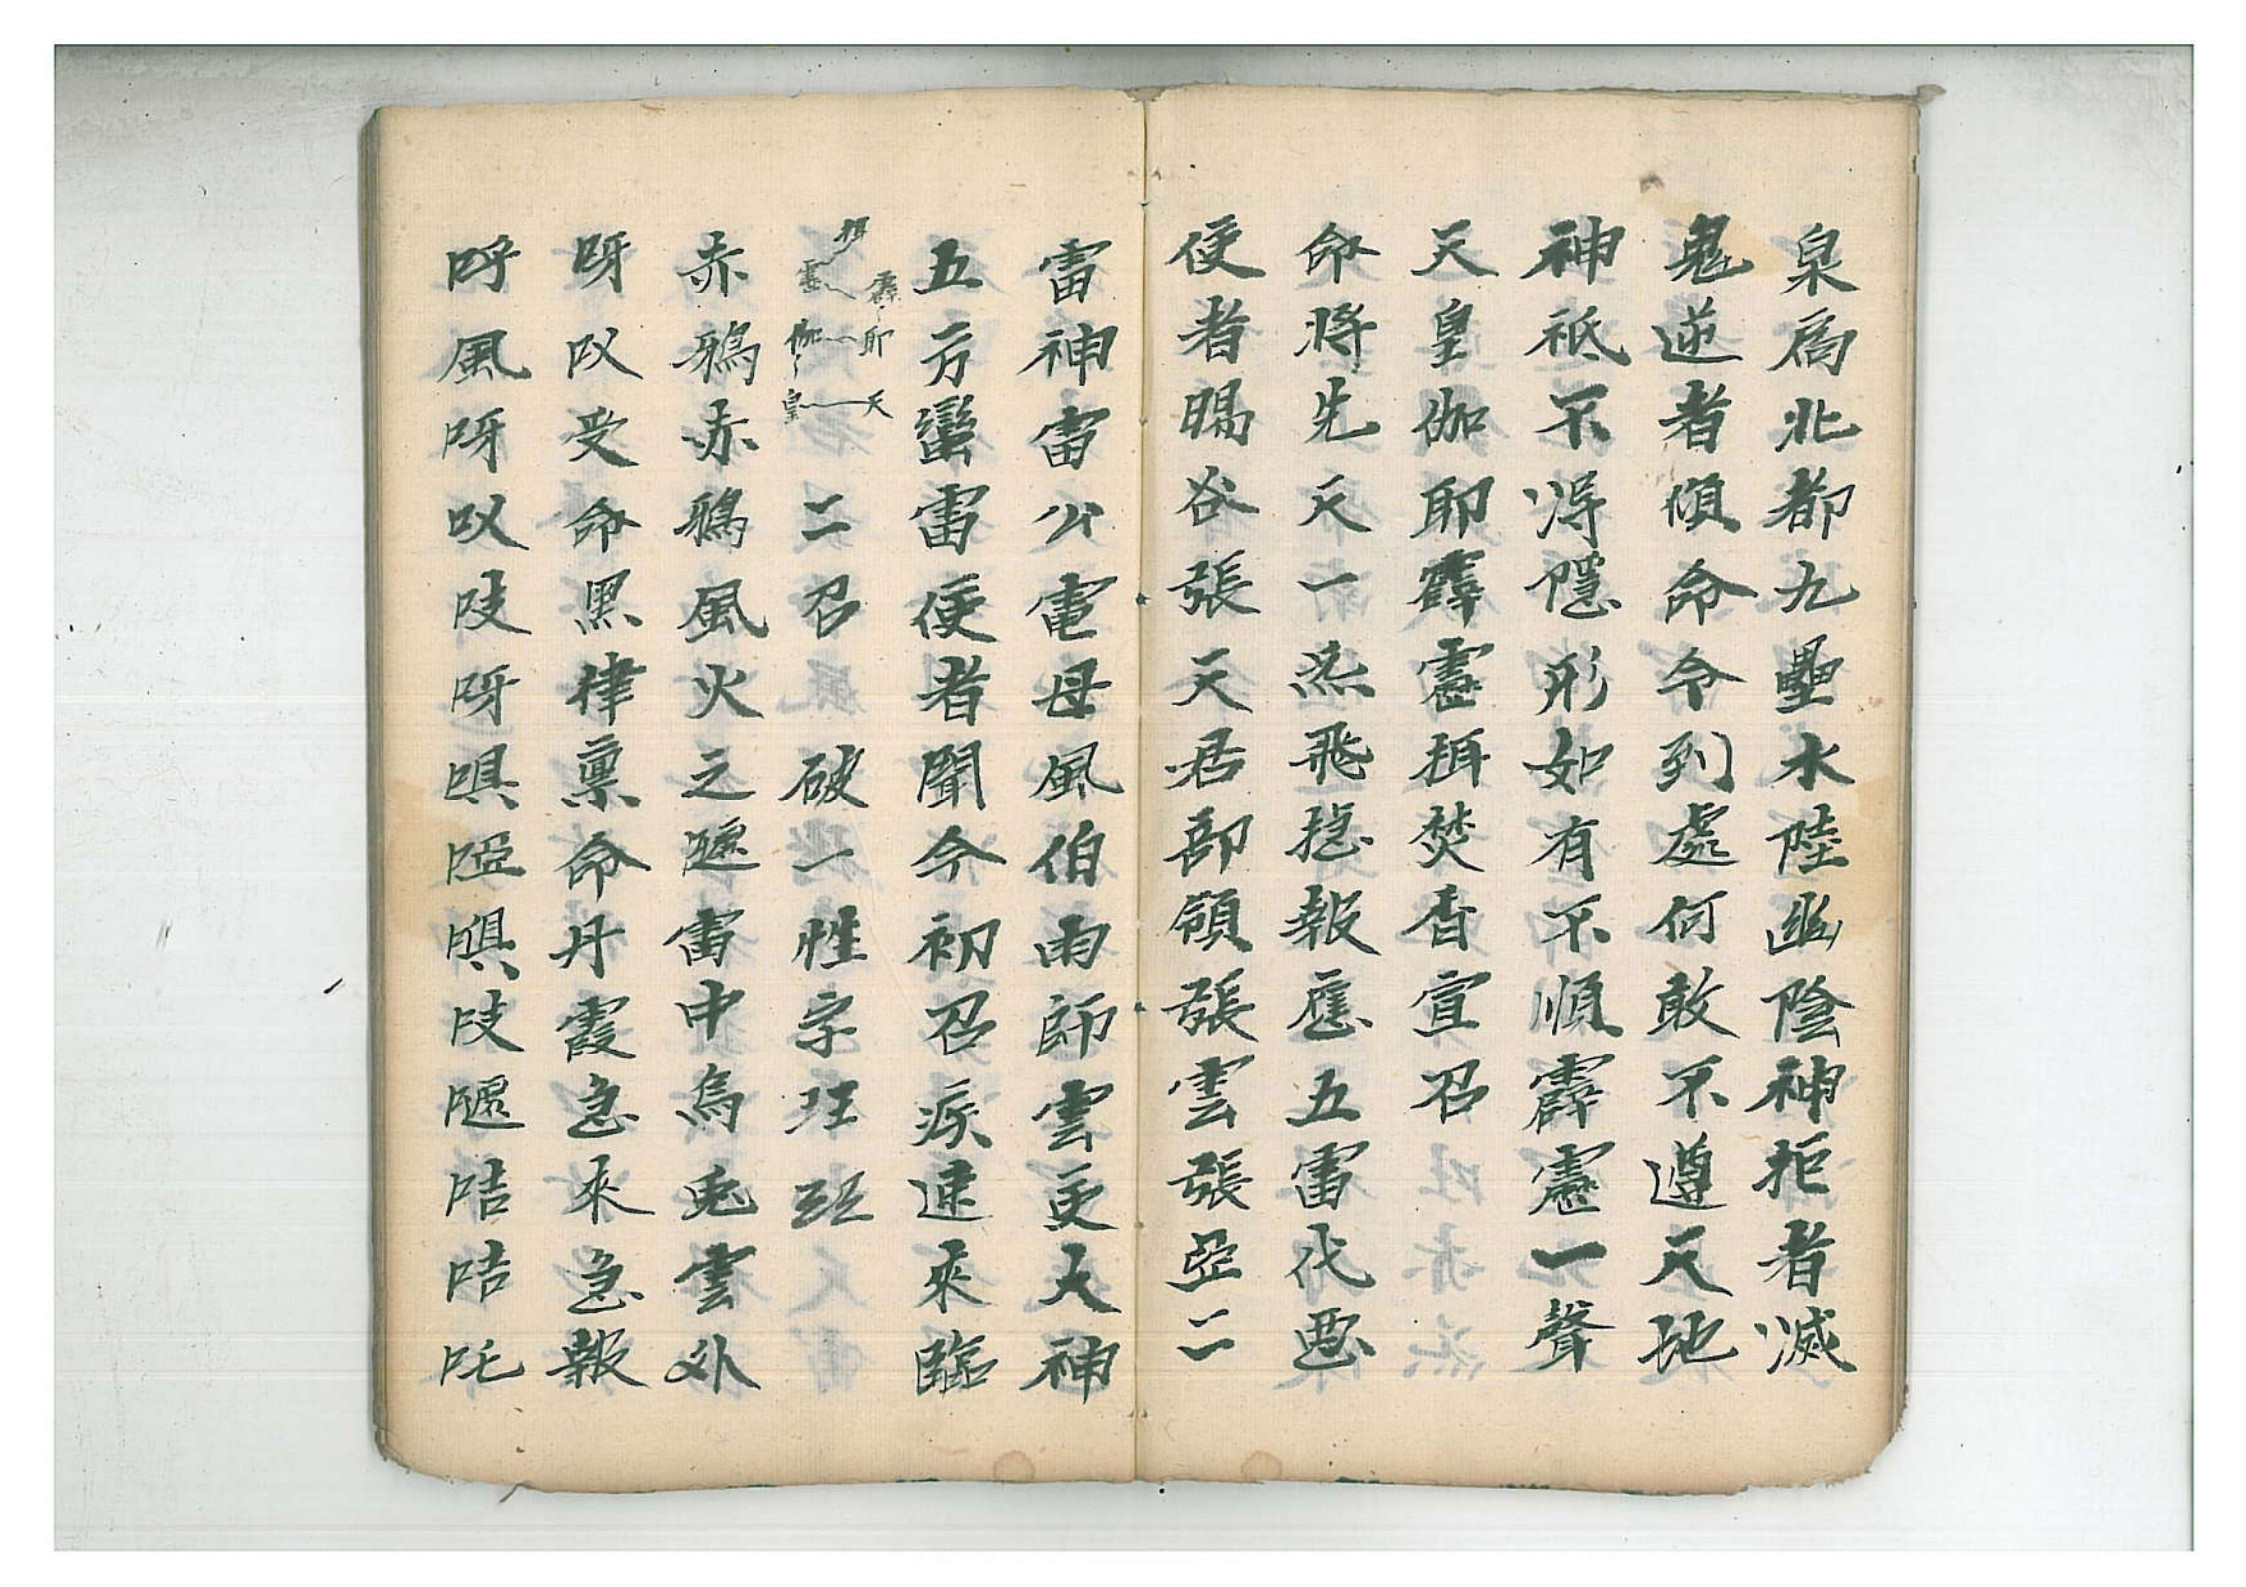 泉為北都九壘水陸幽陰神拒者滅
鬼逆者傾命令到處何敢不遵天地
神祗不得隱形如有不順霹靂一聲
天皇伽耶霹靈揖焚香宣召
命將先天一炁飛捷報應五雷伐惡
使者暘谷張天君部領張雲張亞二
雷神雷公電母風伯雨師雲吏大神
五方蠻雷使者聞今初召疾速來臨
揖 靈 霹 伽 耶 皇 天 二召 破一性字
赤鴉赤鴉風火之 雷中烏兎雲外
呀㕛受命黑律禀命丹霞急來急報
呼風呀㕛吱呀唄啞唄吱 咭咭吒